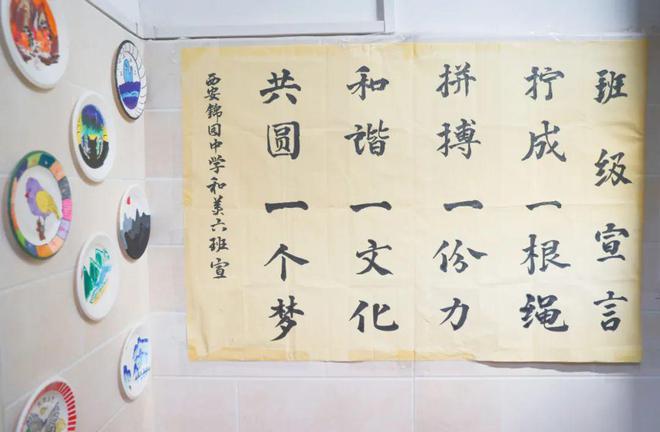 班级宣言
拧成一根绳
拼搏一份力
和谐一文化
共圆一个梦
西安錦园中学和美六班宣